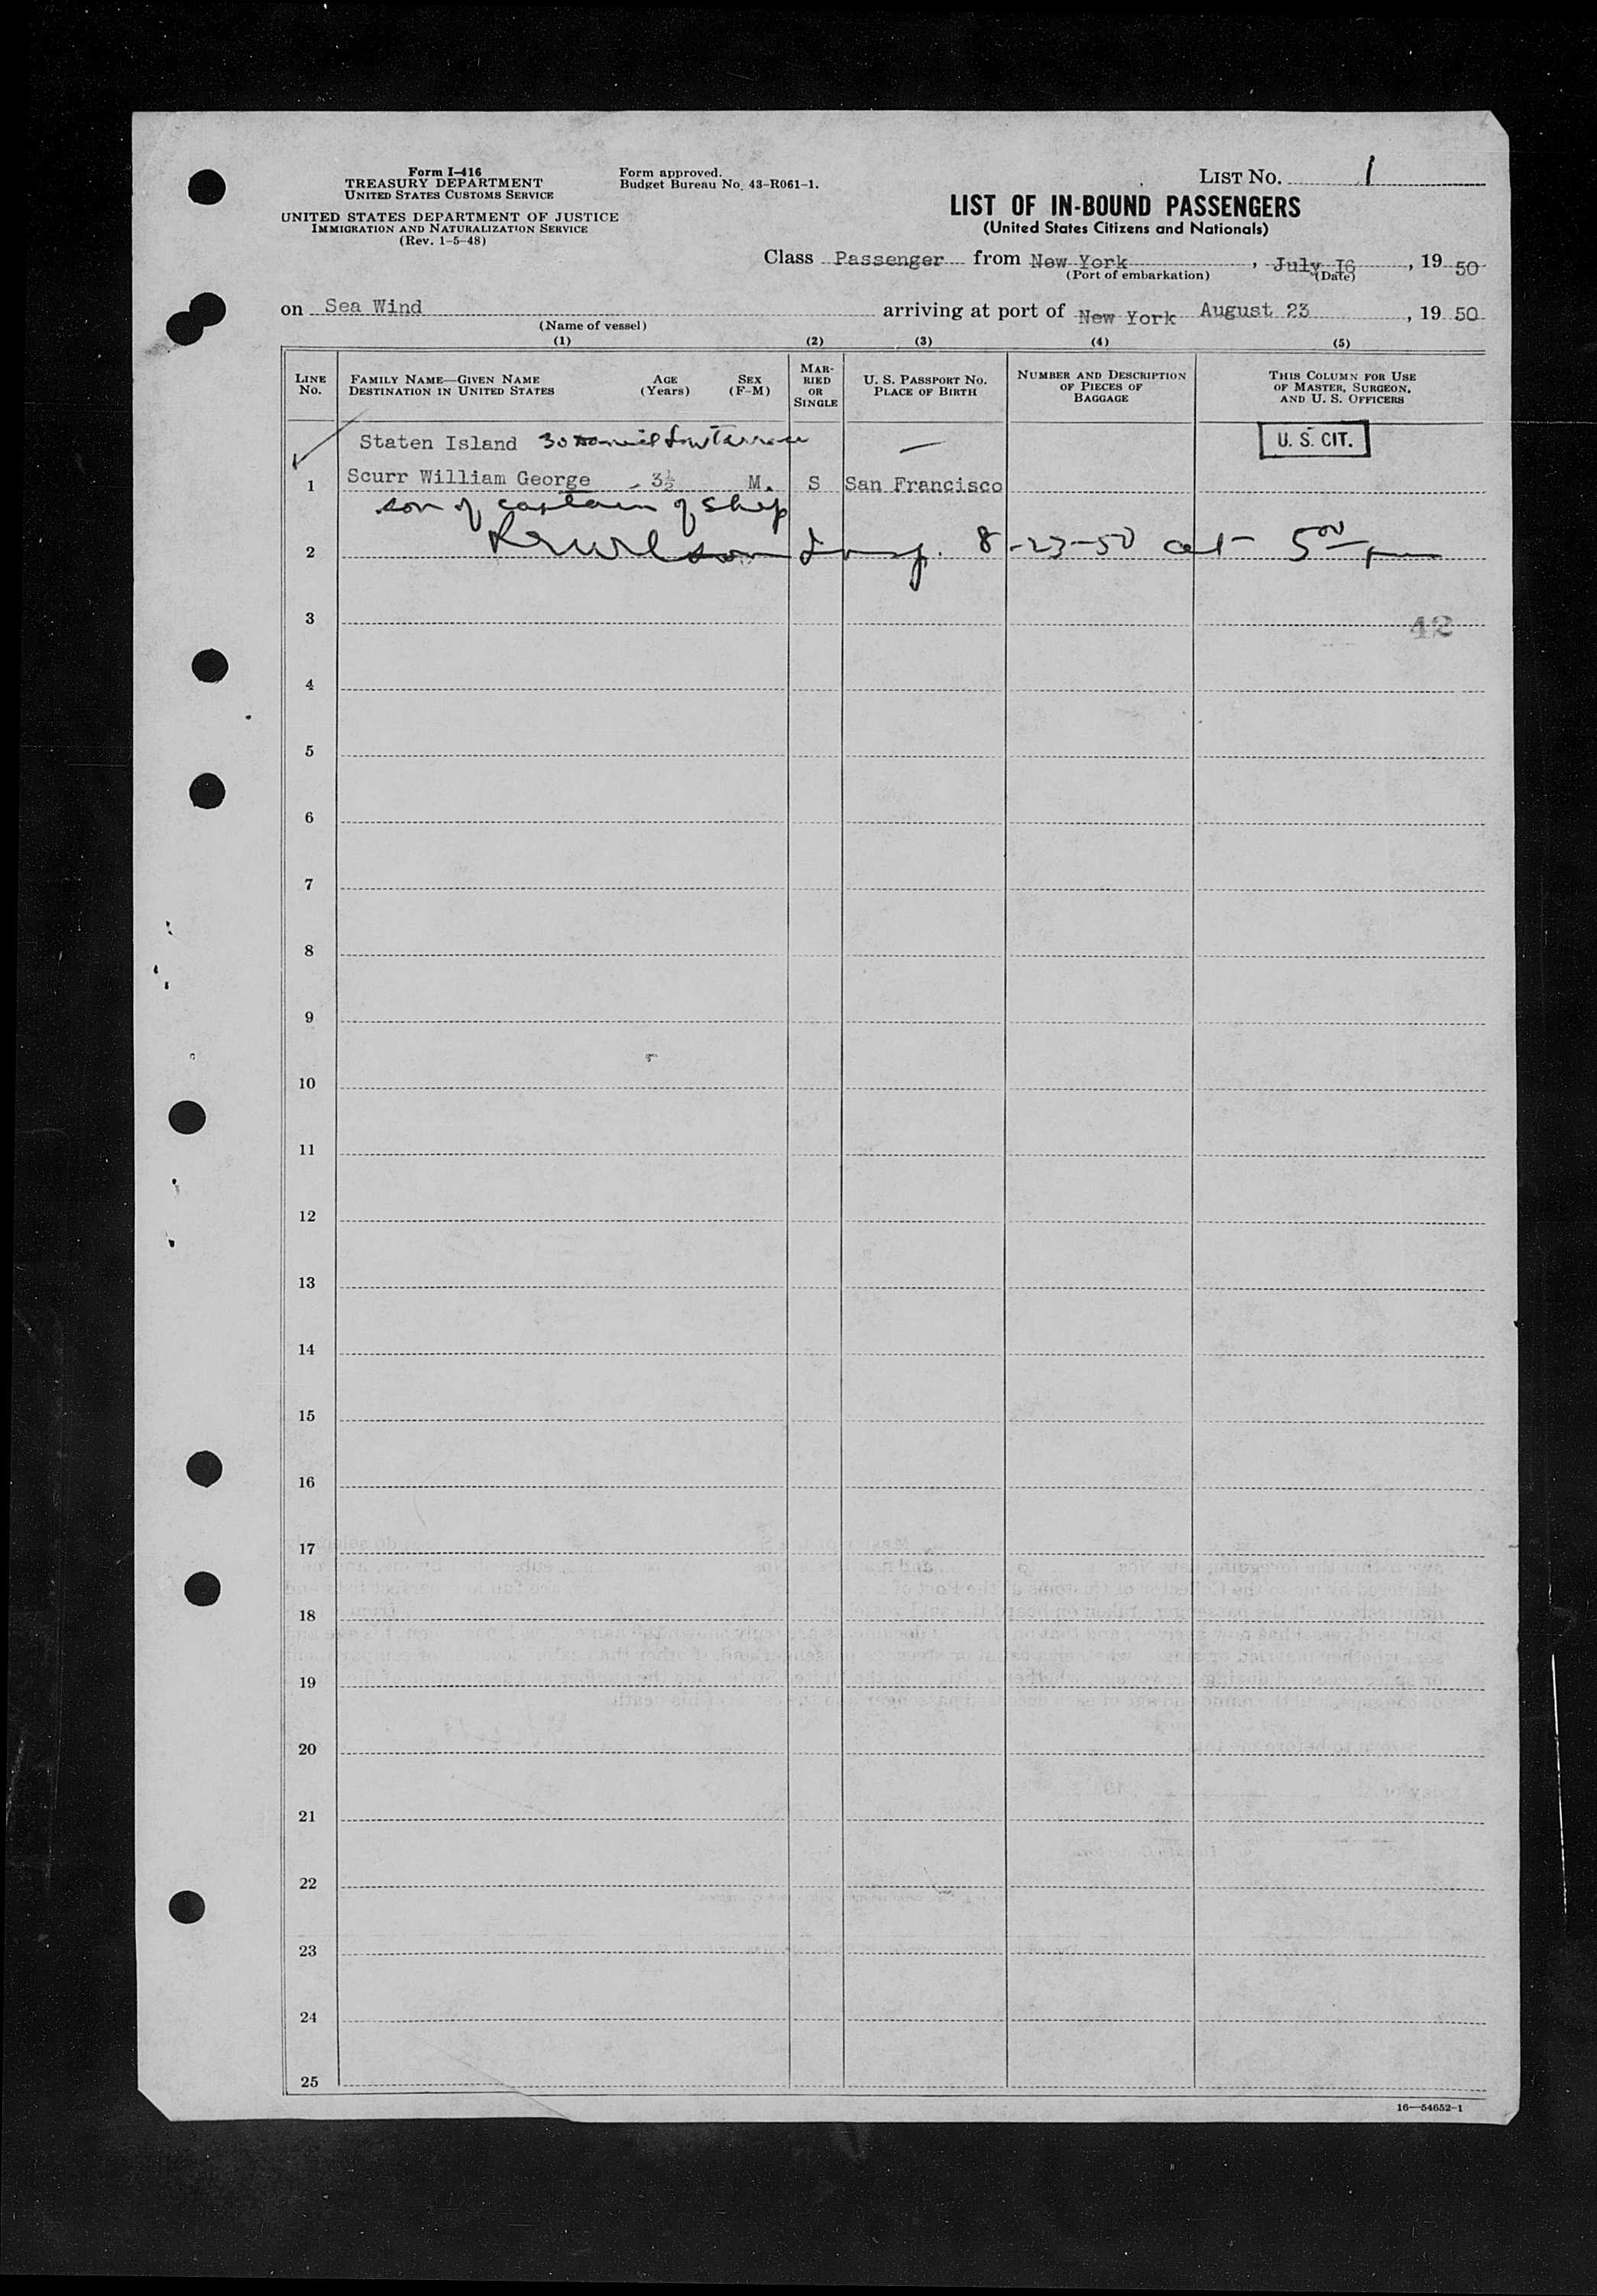 Form I-416
TREASURY DEPARTMENT
UNITED STATES CUSTOMS SERVICE
UNITED STATES DEPARTMENT OF JUSTICE
IMMIGRATION AND NATURALIZATION SERVICE
(Rev. 1-5-48)
Form approved.
Budget Bureau No. 43-R061-1.
LIST No. 1
LIST OF IN-BOUND PASSENGERS
(United States Citizens and Nationals)
Class Passenger from New York, July I6, 19 50
(Port of embarkation) (Date)
on Sea Wind arriving at port of New York August 23, 19 50
(Name of vessel)
(1) (2) (3) (4) (5)
LINE No.
FAMILY NAME—GIVEN NAME
DESTINATION IN UNITED STATES
AGE
(Years)
SEX
(F-M)
MAR-
RIED
OR
SINGLE
U. S. PASSPORT NO.
PLACE OF BIRTH
NUMBER AND DESCRIPTION
OF PIECES OF
BAGGAGE
THIS COLUMN FOR USE
OF MASTER, SURGEON,
AND U. S. OFFICERS
Staten Island 30 — U. S. CIT.
1 Scurr William George 3½ M. S San Francisco
son of captain of ship
2 Insp. 8-23-50 at 5 00 pm
3 42
4
5
6
7
8
9
10
11
12
13
14
15
16
17
18
19
20
21
22
23
24
25
16—54652-1